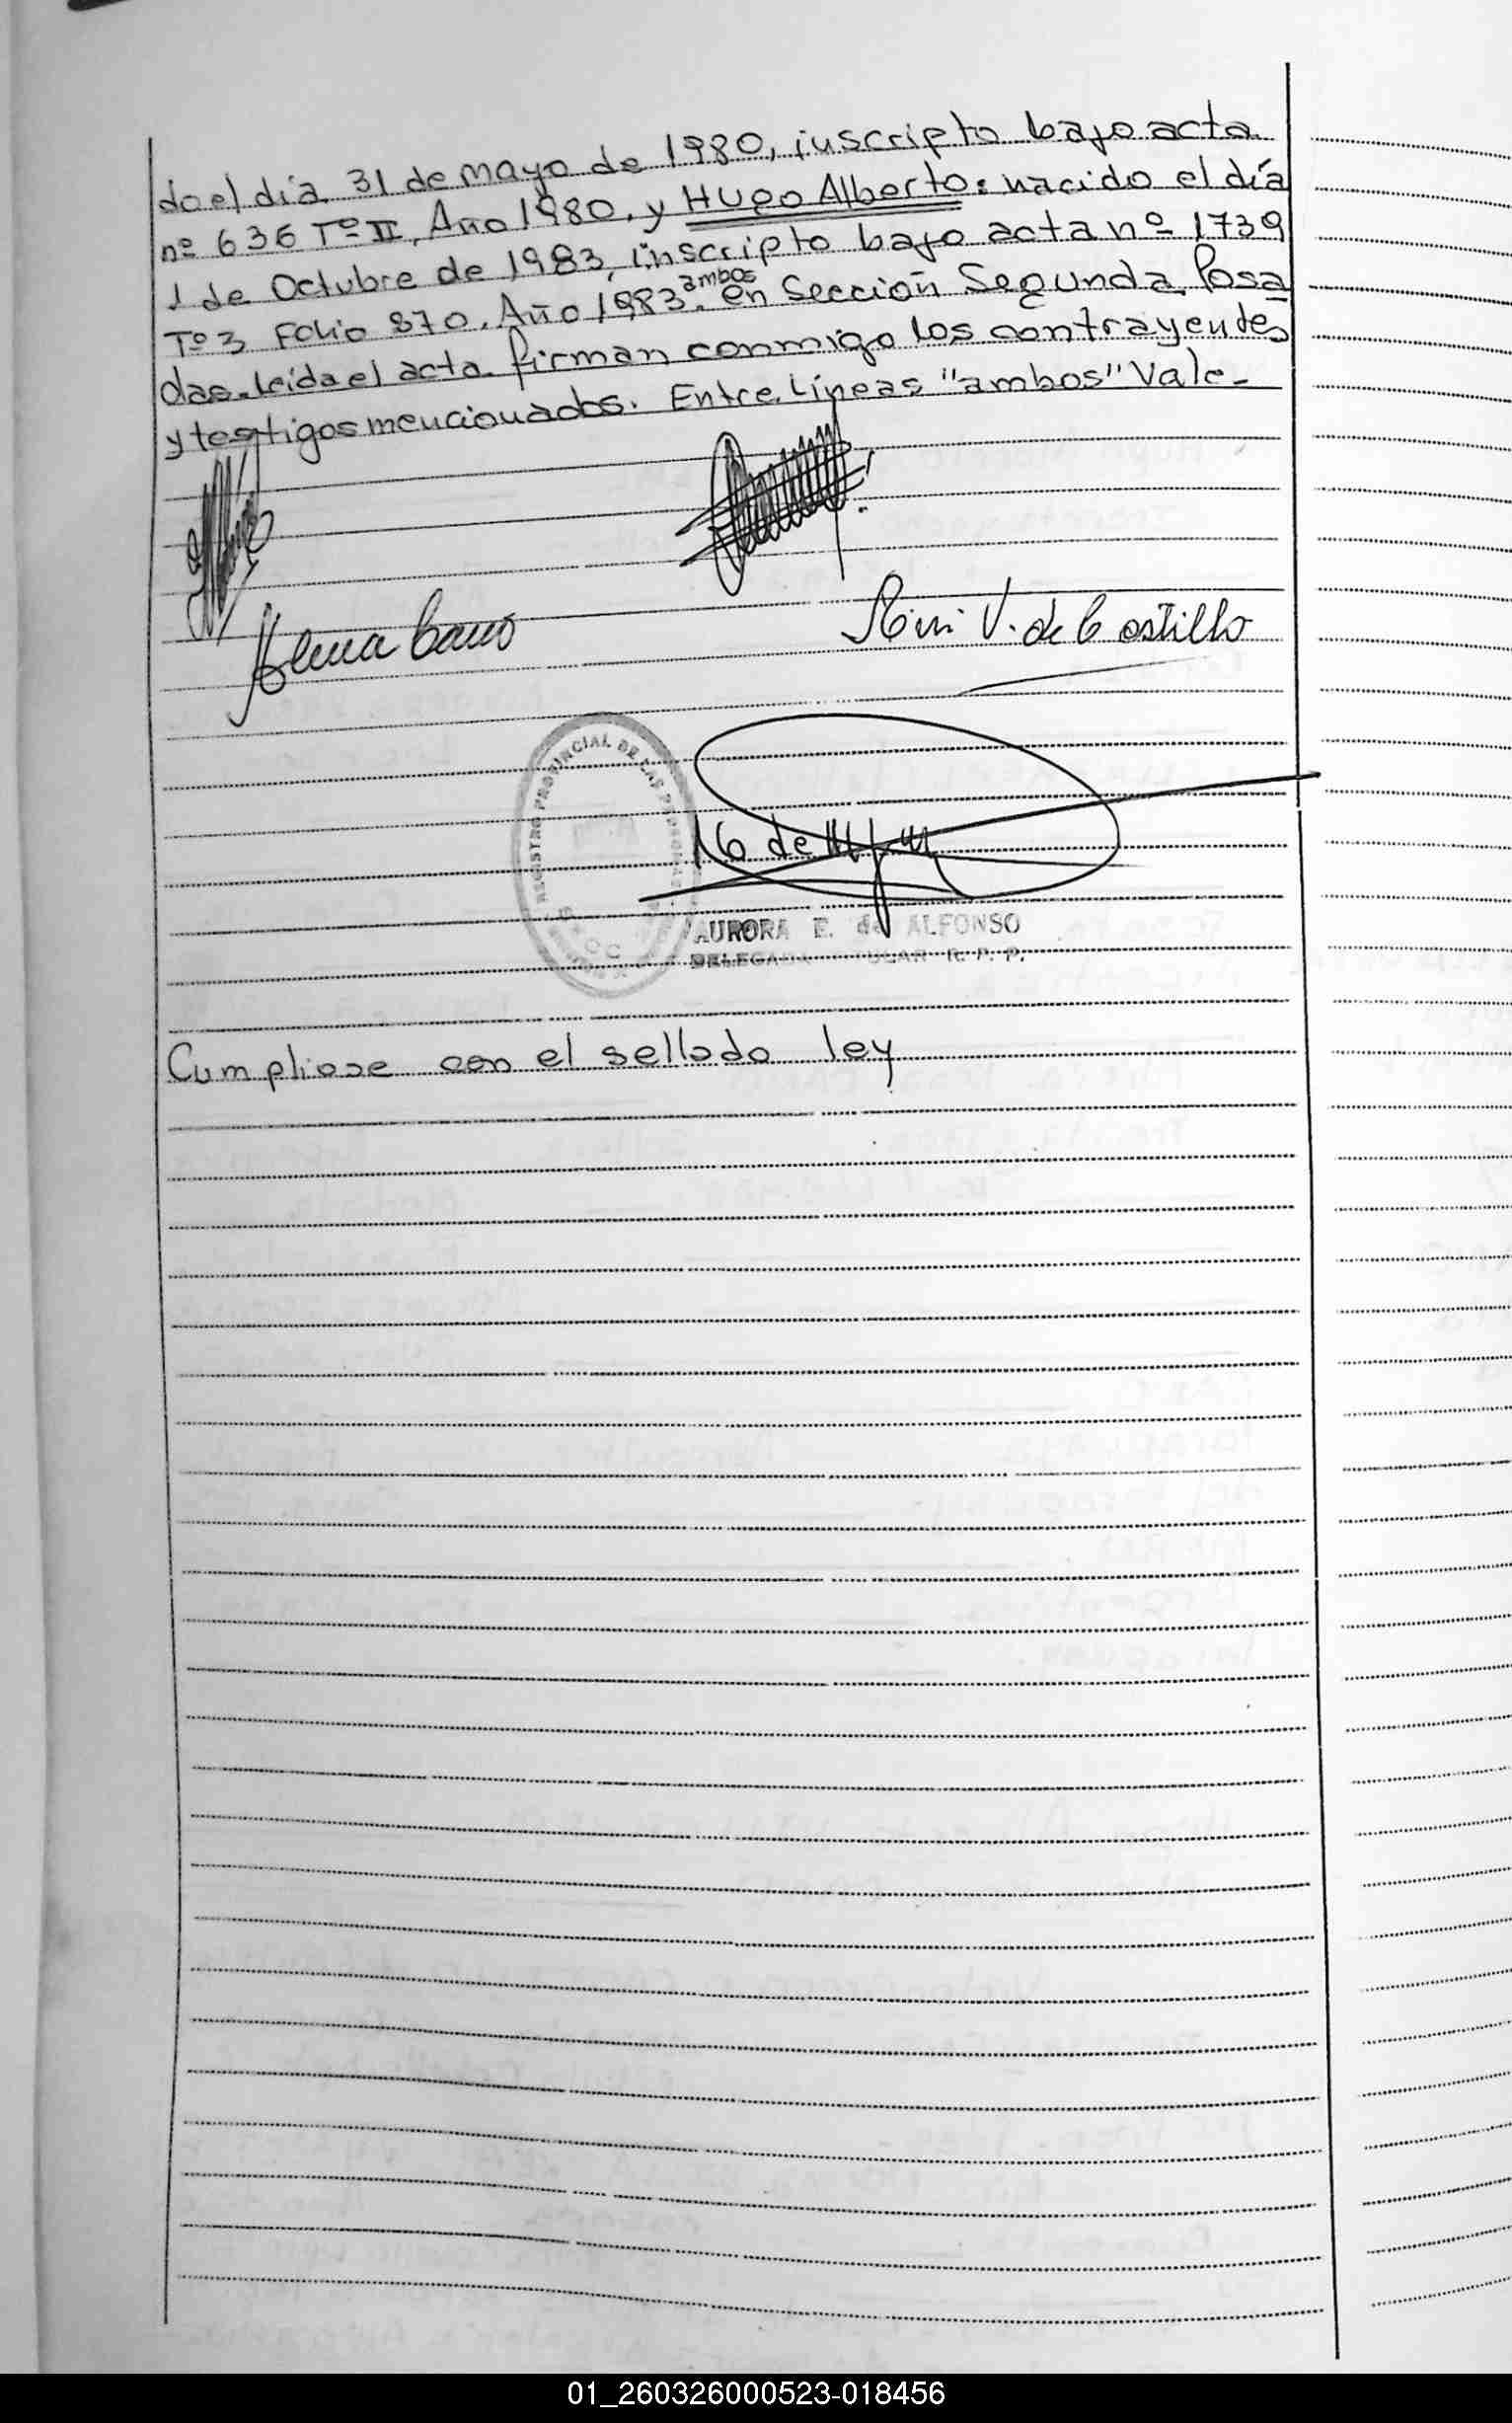 do el día 31 de mayo de 1980, inscripto bajo acta
nº 636 Tº II, Año 1980, y Hugo Alberto: nacido el día
1 de Octubre de 1983, inscripto bajo acta nº 1739
Tº 3 Folio 870. Año 1983. ambos en Sección Segunda Posa
das. Leída el acta firman conmigo los contrayentes
y testigos mencionados. Entre Líneas "ambos" Vale-
V. de Castillo
REGISTRO PROVINCIAL DE LAS PERSONAS
AURORA E. de ALFONSO
DELEGADA TITULAR R. P. P.
Cumpliose con el sellado ley
01_260326000523-018456